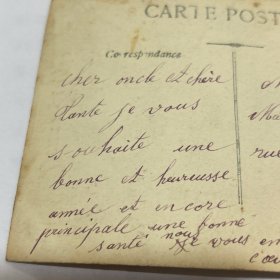 CARTE POST
Correspondance
cher oncle et chère
tante je vous
souhaite une
bonne et heureusse
année et en core
principale une bonne
santé nous vous en
rue